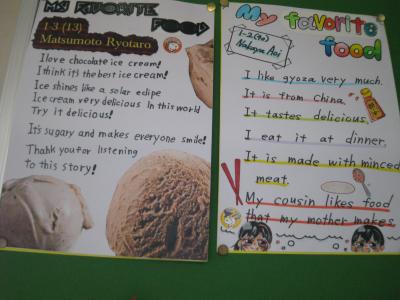 MY FAVORITE
FOOD
1-3 (13)
Matsumoto Ryotaro
I love chocolate ice cream!
I think it's the best ice cream!
Ice shines like a solar eclipe
Ice cream very delicious In this world
Try it delicious!
It's sugary and makes everyone smile!
Thank you for listening
to this story!
My favorite
food
I like gyoza very much.
It is from China.
It tastes delicious.
I eat it at dinner.
It is made with minced
meat.
My cousin likes food
that my mother makes.